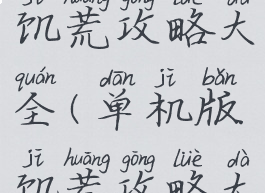 jī huāng gōng lüè dà
饥荒攻略大
quán dān jī bǎn
全(单机版
jī huāng gōng lüè dà
饥荒攻略大